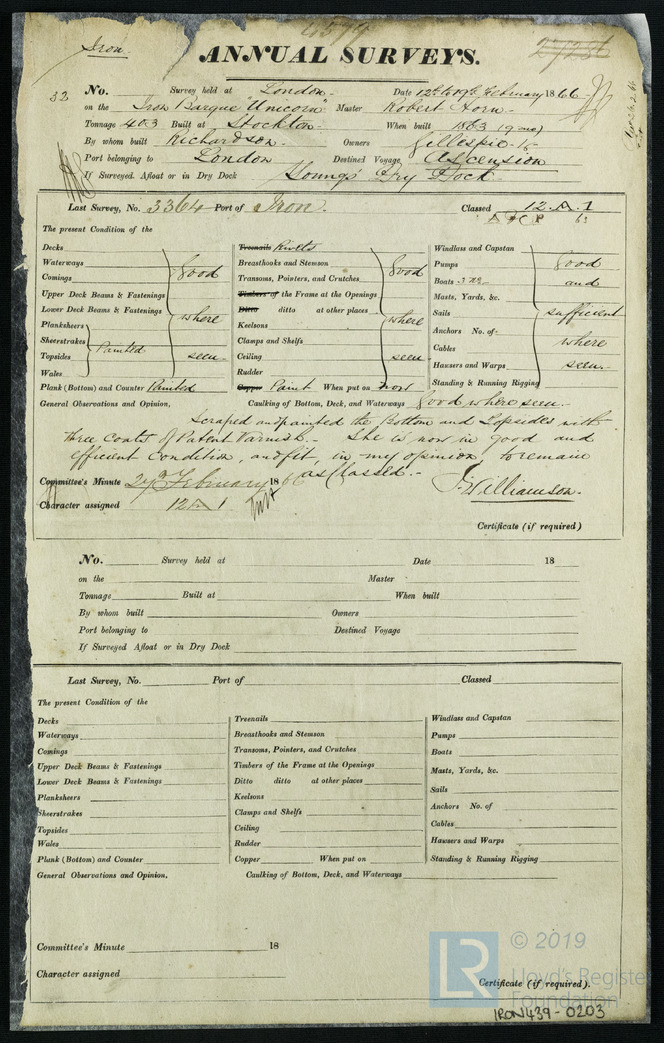 Iron.
4579
ANNUAL SURVEYS.
32 No. Survey held at London. Date 12th & 19th February 1866.
on the Iron Barque "Unicorn" Master Robert Horn.
Tonnage 403 Built at Stockton. When built 1863 (9 mo)
By whom built Richardson. Owners Gillespie
Port belonging to London Destined Voyage Ascension
If Surveyed Afloat or in Dry Dock Young's Dry Dock.
Last Survey, No. 3364 Port of Iron. Classed 12.A.1
63
The present Condition of the
Decks
Waterways
Comings
Upper Deck Beams & Fastenings
Lower Deck Beams & Fastenings
good
where
seen.
Planksheers
Sheerstrakes
Topsides
Wales
Painted
Plank (Bottom) and Counter Painted
General Observations and Opinion,
Treenails Rivets
Breasthooks and Stemson
Transoms, Pointers, and Crutches
Timbers of the Frame at the Openings
Ditto ditto at other places
Keelsons
Clamps and Shelfs
Ceiling
Rudder
good
where
seen.
Copper Paint When put on now
Caulking of Bottom, Deck, and Waterways good where seen.
Windlass and Capstan
Pumps
Boats 3
Masts, Yards, &c.
Sails
Anchors No. of
Cables
Hawsers and Warps
Standing & Running Rigging
good
and
sufficient
where
seen.
Scraped and painted the Bottom and Topsides with
three coats of Patent Varnish. She is now in good and
efficient Condition, and fit, in my opinion, to remain
as Classed.
Committee's Minute 27th February 1866
J. Williamson.
Character assigned 12 A 1
Certificate (if required)
No. Survey held at Date 18
on the Master
Tonnage Built at When built
By whom built Owners
Port belonging to Destined Voyage
If Surveyed Afloat or in Dry Dock
Last Survey, No. Port of Classed
The present Condition of the
Decks
Waterways
Comings
Upper Deck Beams & Fastenings
Lower Deck Beams & Fastenings
Planksheers
Sheerstrakes
Topsides
Wales
Plank (Bottom) and Counter
General Observations and Opinion,
Treenails
Breasthooks and Stemson
Transoms, Pointers, and Crutches
Timbers of the Frame at the Openings
Ditto ditto at other places
Keelsons
Clamps and Shelfs
Ceiling
Rudder
Copper When put on
Caulking of Bottom, Deck, and Waterways
Windlass and Capstan
Pumps
Boats
Masts, Yards, &c.
Sails
Anchors No. of
Cables
Hawsers and Warps
Standing & Running Rigging
Committee's Minute 18
Character assigned
Certificate (if required).
LR © 2019
Lloyd's Register
Foundation
IRON439-0203